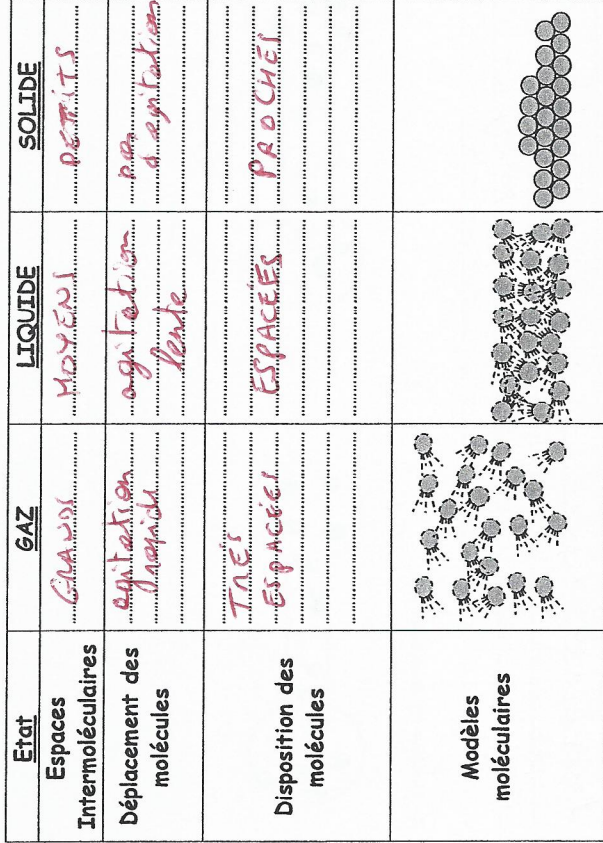 Etat GAZ LIQUIDE SOLIDE
Espaces
Intermoléculaires
GRANDS MOYENS PETITS
Déplacement des
molécules
agitation
rapide
agitation
lente
pas
d'agitation
Disposition des
molécules
TRÈS
ESPACÉES
ESPACÉES
PROCHES
Modèles
moléculaires